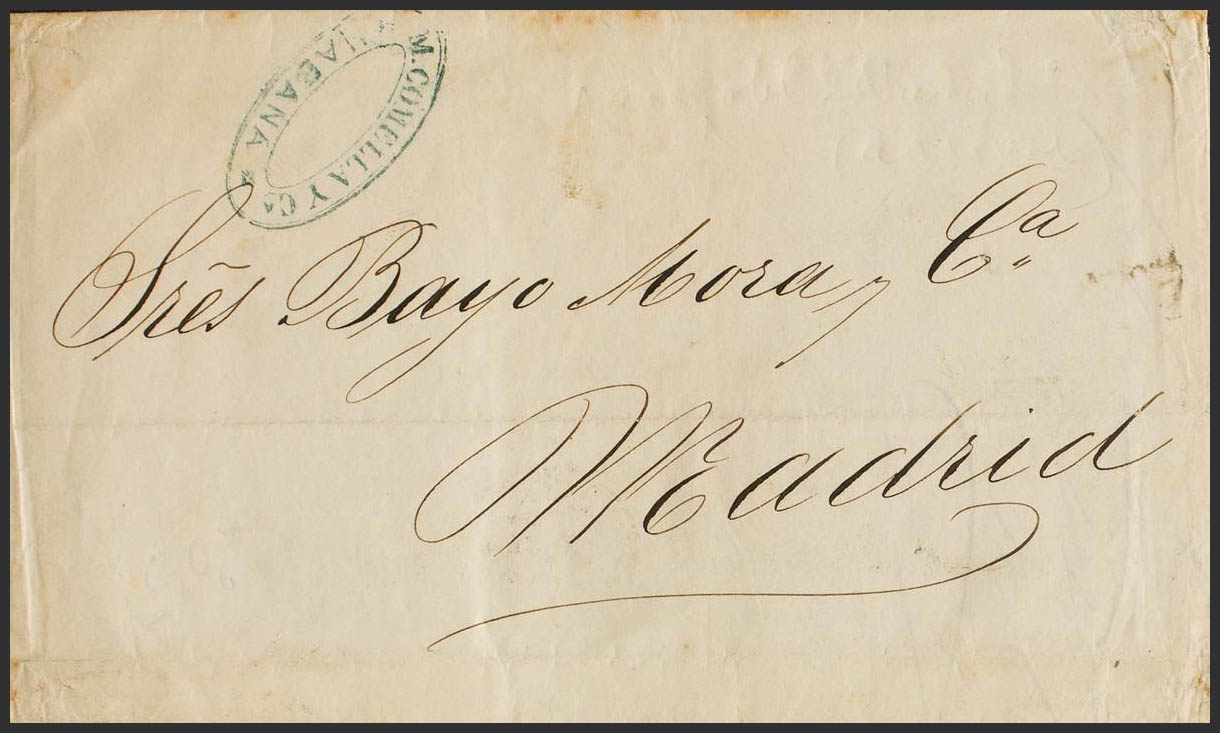 M. COMELLA Y Cᴬ
* HABANA *
Sres̃ Bayo Mora y Cª
Madrid